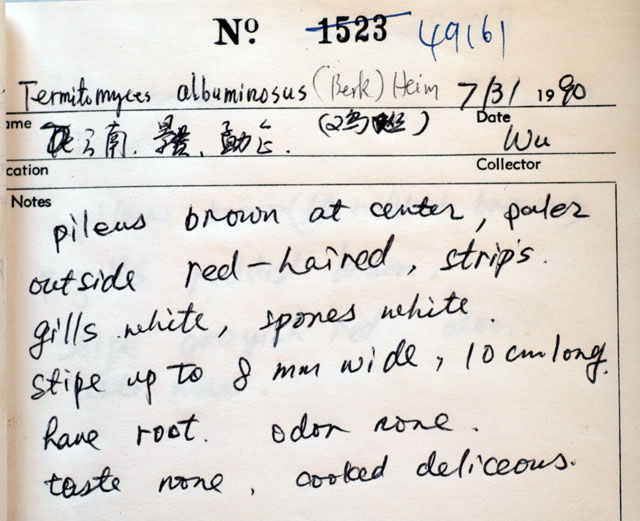 Nº 1523 49161
Termitomyces albuminosus (Berk) Heim 7/31 1990
ame Date
云南. (鸡 ) Wu
cation Collector
Notes
pileus brown at center, paler
outside red-haired, strips.
gills white, spores white.
stipe up to 8 mm wide, 10 cm long.
have root. odor none.
taste none, cooked deliceous.